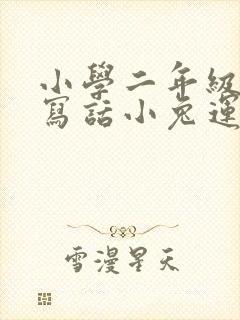 小學二年級
寫話小兔運
雪漫星天